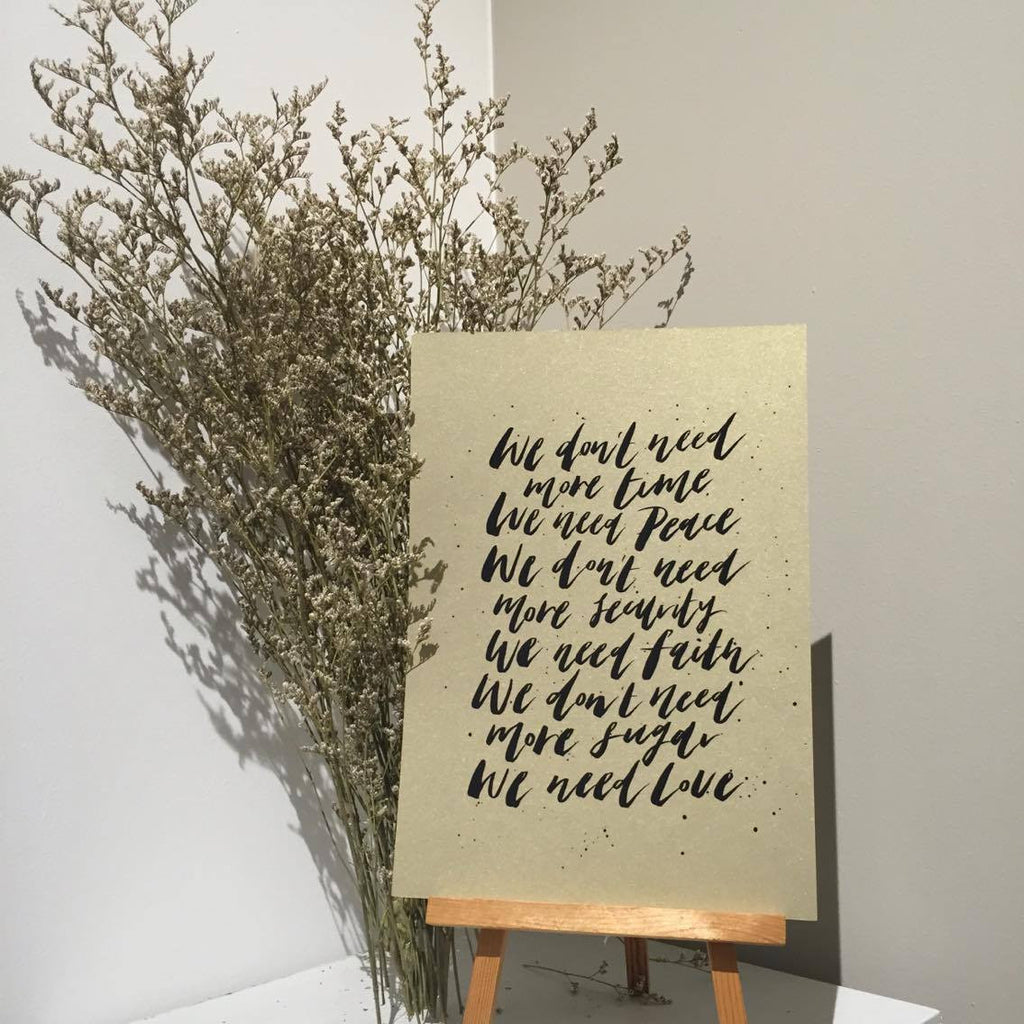 We don't need
more time
We need Peace
We don't need
more security
We need faith
We don't need
more sugar
We need Love